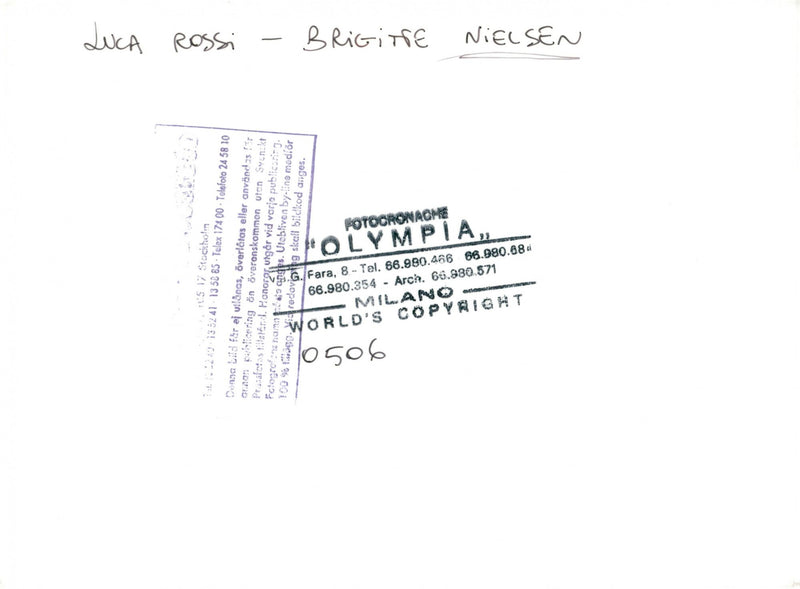 LUCA ROSSi - BRiGiTTE NiELSEN
17 Stockholm
13 52 41 · 13 58 85 · Telex 174 00 · Telefoto 24 58 10
Denna bild får ej utlånas, överlåtas eller användas för
annan publicering än överenskommen utan Svenskt
Pressfotos tillstånd. Honorar utgår vid varje publicering.
Fotografens namn skall anges. Utebliven by-line medför
100 % tillägg. Vid redovisning skall bildkod anges.
FOTOCRONACHE
"OLYMPIA„
G. Fara, 8 - Tel. 66.980.466 66.980.68
66.980.354 - Arch. 66.980.571
MILANO
WORLD'S COPYRIGHT
0506